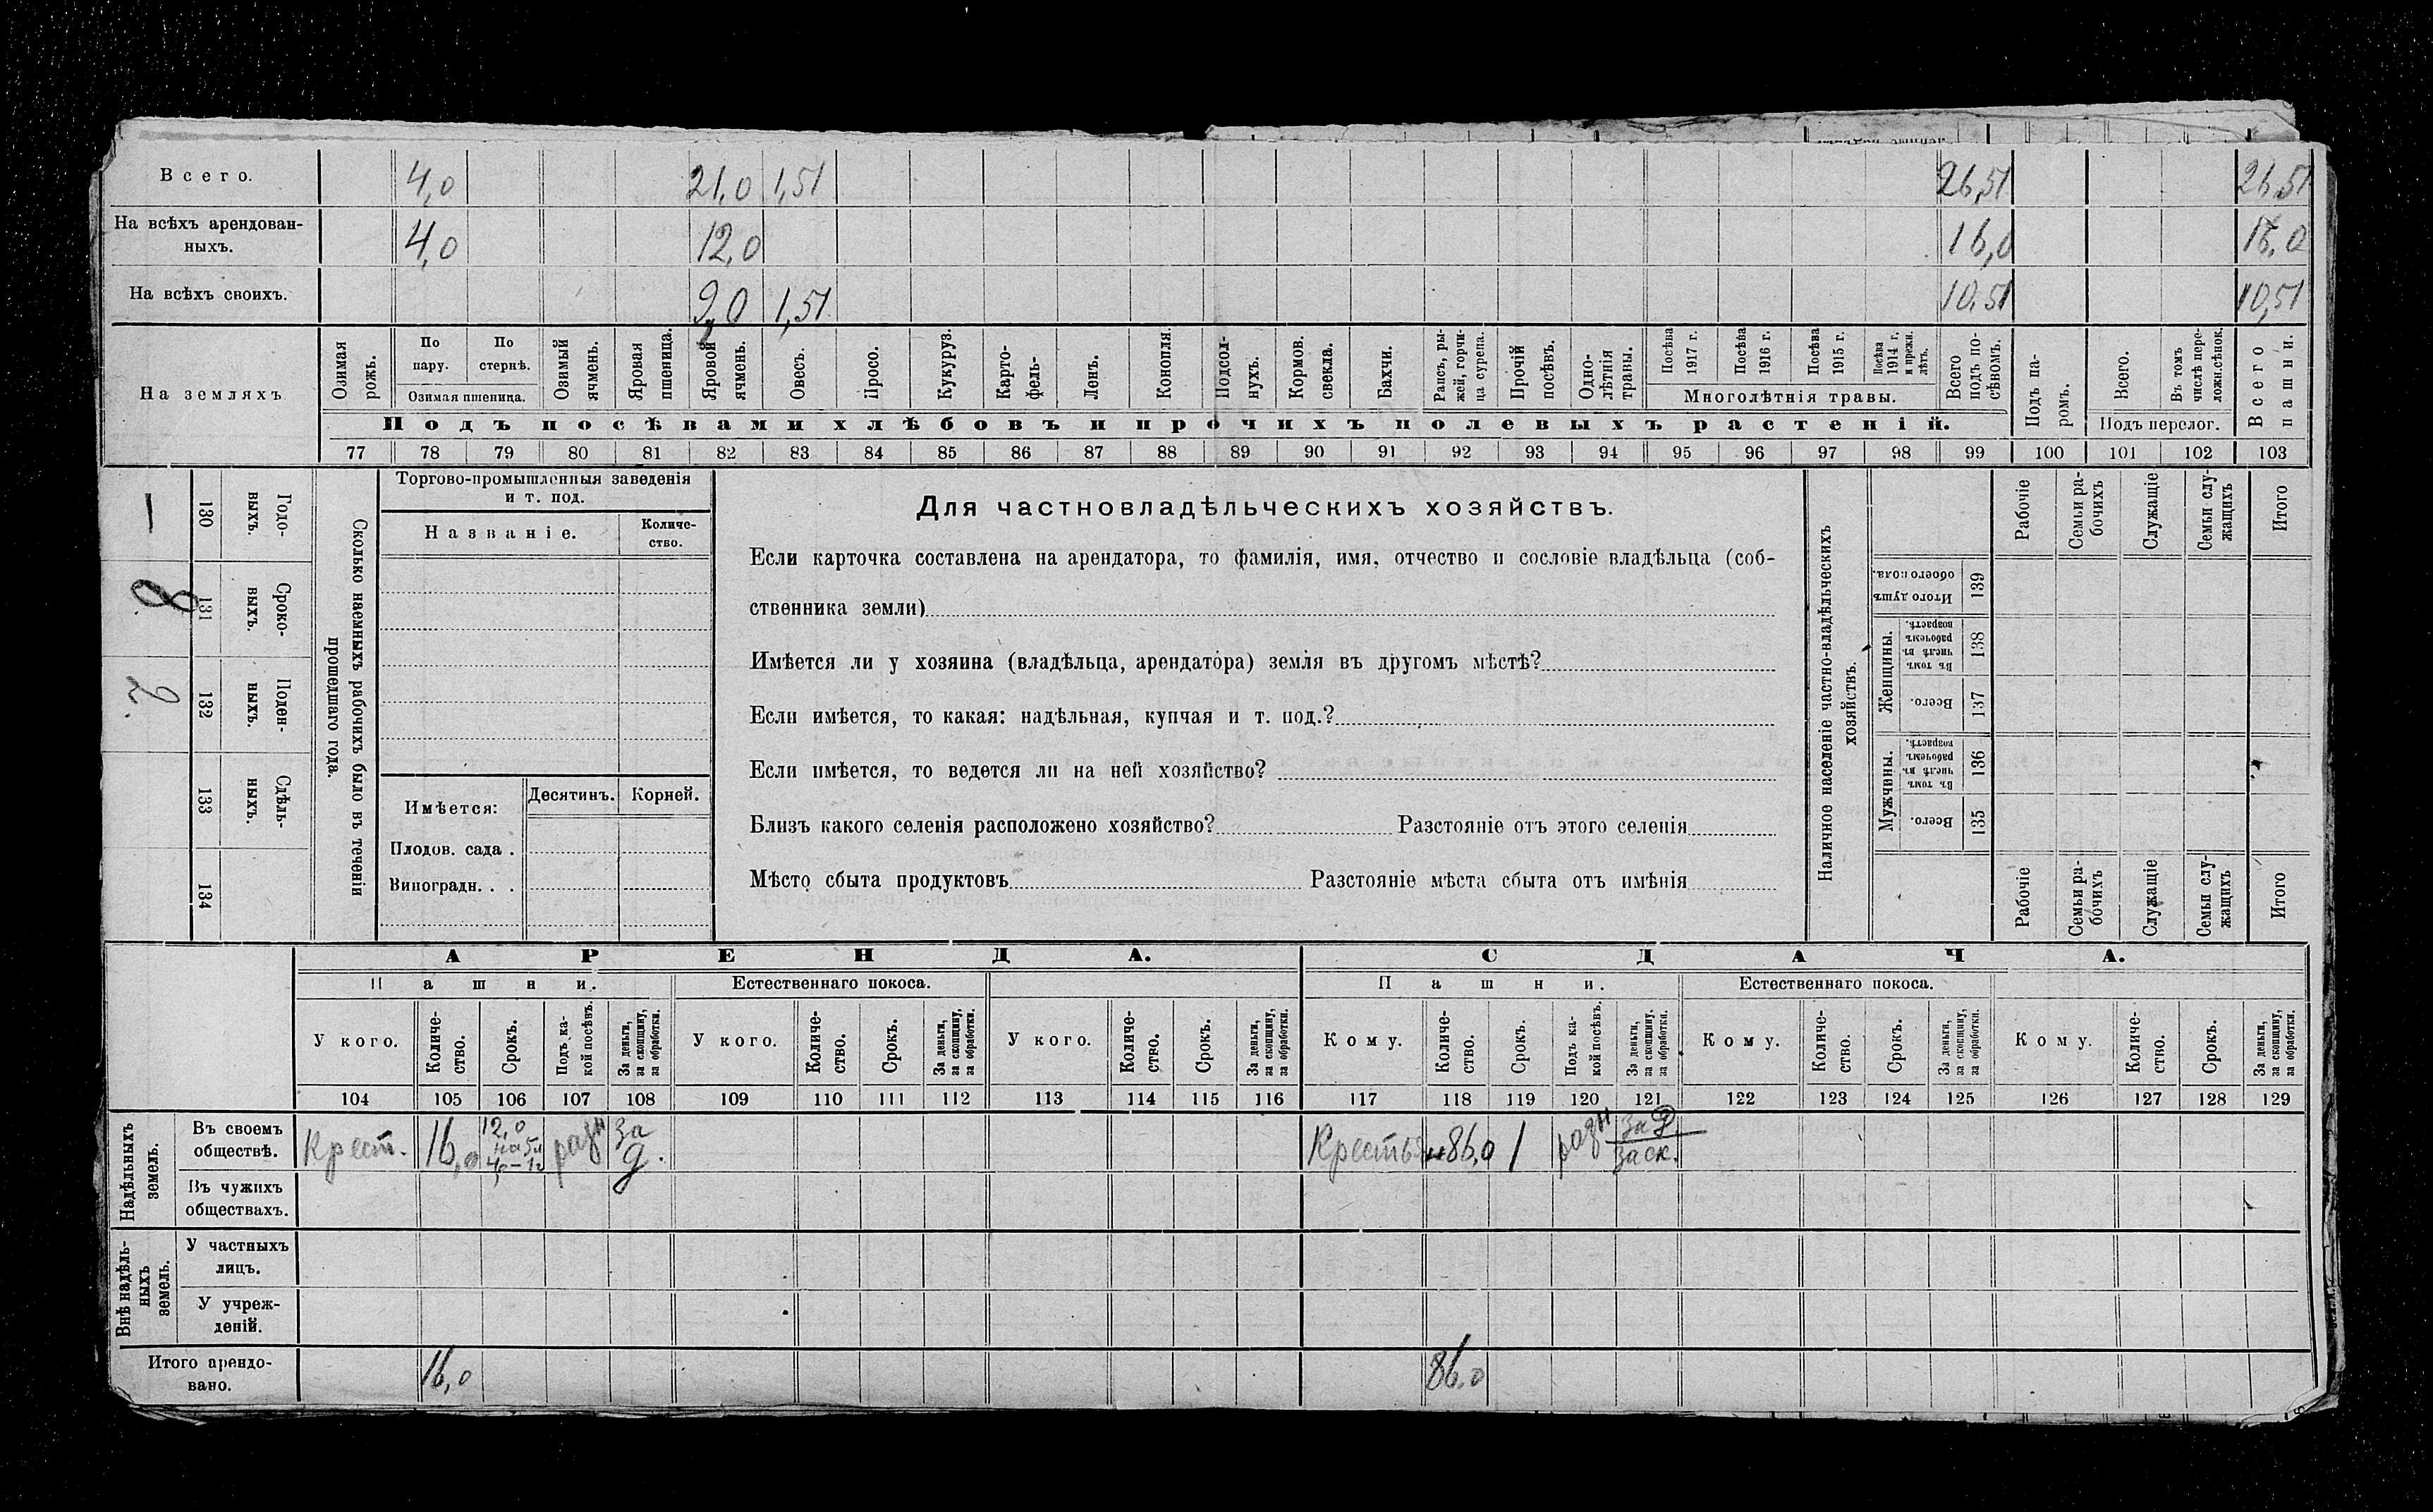 Всего. 4,0 21,0 1,51 26,51 26,51
На всѣхъ арендован-
ныхъ. 4,0 12,0 16,0 16,0
На всѣхъ своихъ. 9,0 1,51 10,51 10,51
На земляхъ
Озимая
рожь.
По
пару.
По
стернѣ.
Озимая пшеница.
Озимый
ячмень.
Яровая
пшеница.
Яровой
ячмень.
Овесъ.
Просо.
Кукуруз.
Карто-
фель-
Ленъ.
Конопля.
Подсол-
нухъ.
Кормов.
свекла.
Бахчи.
Рапсъ, ры-
жей, горчи-
ца сурепа.
Прочій
посѣвъ.
Одно-
лѣтнія
травы.
Посѣва
1917 г.
Посѣва
1916 г.
Посѣва
1915 г.
Посѣва
1914 г.
и прежн.
лѣтъ.
Многолѣтнія травы.
Всего
подъ по-
сѣвомъ.
Подъ па-
ромъ.
Всего.
Въ томъ
числѣ пере-
ложн.сѣнок.
Подъ перелог.
Всего
пашни.
Подъ посѣвами хлѣбовъ и прочихъ полевыхъ растеній.
77 78 79 80 81 82 83 84 85 86 87 88 89 90 91 92 93 94 95 96 97 98 99 100 101 102 103
Сколько наемныхъ рабочихъ было въ теченіи
прошедшаго года.
Годо-
выхъ.
130
—
Сроко-
выхъ.
131
8
Поден-
ныхъ.
132
2
Сдѣль-
ныхъ.
133
134
Торгово-промышленныя заведенія
и т. под.
Названіе.
Количе-
ство.
Имѣется:
Десятинъ. Корней.
Плодов. сада .
Виноградн. . .
Для частновладѣльческихъ хозяйствъ.
Если карточка составлена на арендатора, то фамилія, имя, отчество и сословіе владѣльца (соб-
ственника земли)
Имѣется ли у хозяина (владѣльца, арендатора) земля въ другомъ мѣстѣ?
Если имѣется, то какая: надѣльная, купчая и т. под.?
Если имѣется, то ведется ли на ней хозяйство?
Близъ какого селенія расположено хозяйство? Разстояніе отъ этого селенія
Мѣсто сбыта продуктовъ Разстояніе мѣста сбыта отъ имѣнія
Наличное населеніе частно-владѣльческихъ
хозяйствъ.
Рабочіе
Семьи ра-
бочихъ
Служащіе
Семьи слу-
жащихъ
Итого
Итого душъ
обоего пола.
139
Женщины.
Въ томъ
числѣ въ
рабочемъ
возрастѣ.
138
Всего.
137
Мужчины.
Въ томъ
числѣ въ
рабочемъ
возрастѣ.
136
Всего.
135
Рабочіе
Семьи ра-
бочихъ
Служащіе
Семьи слу-
жащихъ
Итого
АРЕНДА. СДАЧА.
Пашни. Естественнаго покоса. Пашни. Естественнаго покоса.
У кого.
Количе-
ство.
Срокъ.
Подъ ка-
кой посѣвъ.
За деньги,
за скопщину,
за обработки.
У кого.
Количе-
ство.
Срокъ.
За деньги,
за скопщину,
за обработки.
У кого.
Количе-
ство.
Срокъ.
За деньги,
за скопщину,
за обработки.
Кому.
Количе-
ство.
Срокъ.
Подъ ка-
кой посѣвъ.
За деньги,
за скопщину,
за обработки.
Кому.
Количе-
ство.
Срокъ.
За деньги,
за скопщину,
за обработки.
Кому.
Количе-
ство.
Срокъ.
За деньги,
за скопщину,
за обработки.
104 105 106 107 108 109 110 111 112 113 114 115 116 117 118 119 120 121 122 123 124 125 126 127 128 129
Надѣльныхъ
земель.
Въ своемъ
обществѣ.
Крест. 16,0
12,0
на 5л
4,0-1г
разн
за
д.
Крестья 86,0 1 разн
за д
за ск.
Въ чужихъ
обществахъ.
Внѣ надѣль-
ныхъ
земель.
У частныхъ
лицъ.
У учреж-
деній.
Итого арендо-
вано. 16,0 86,0